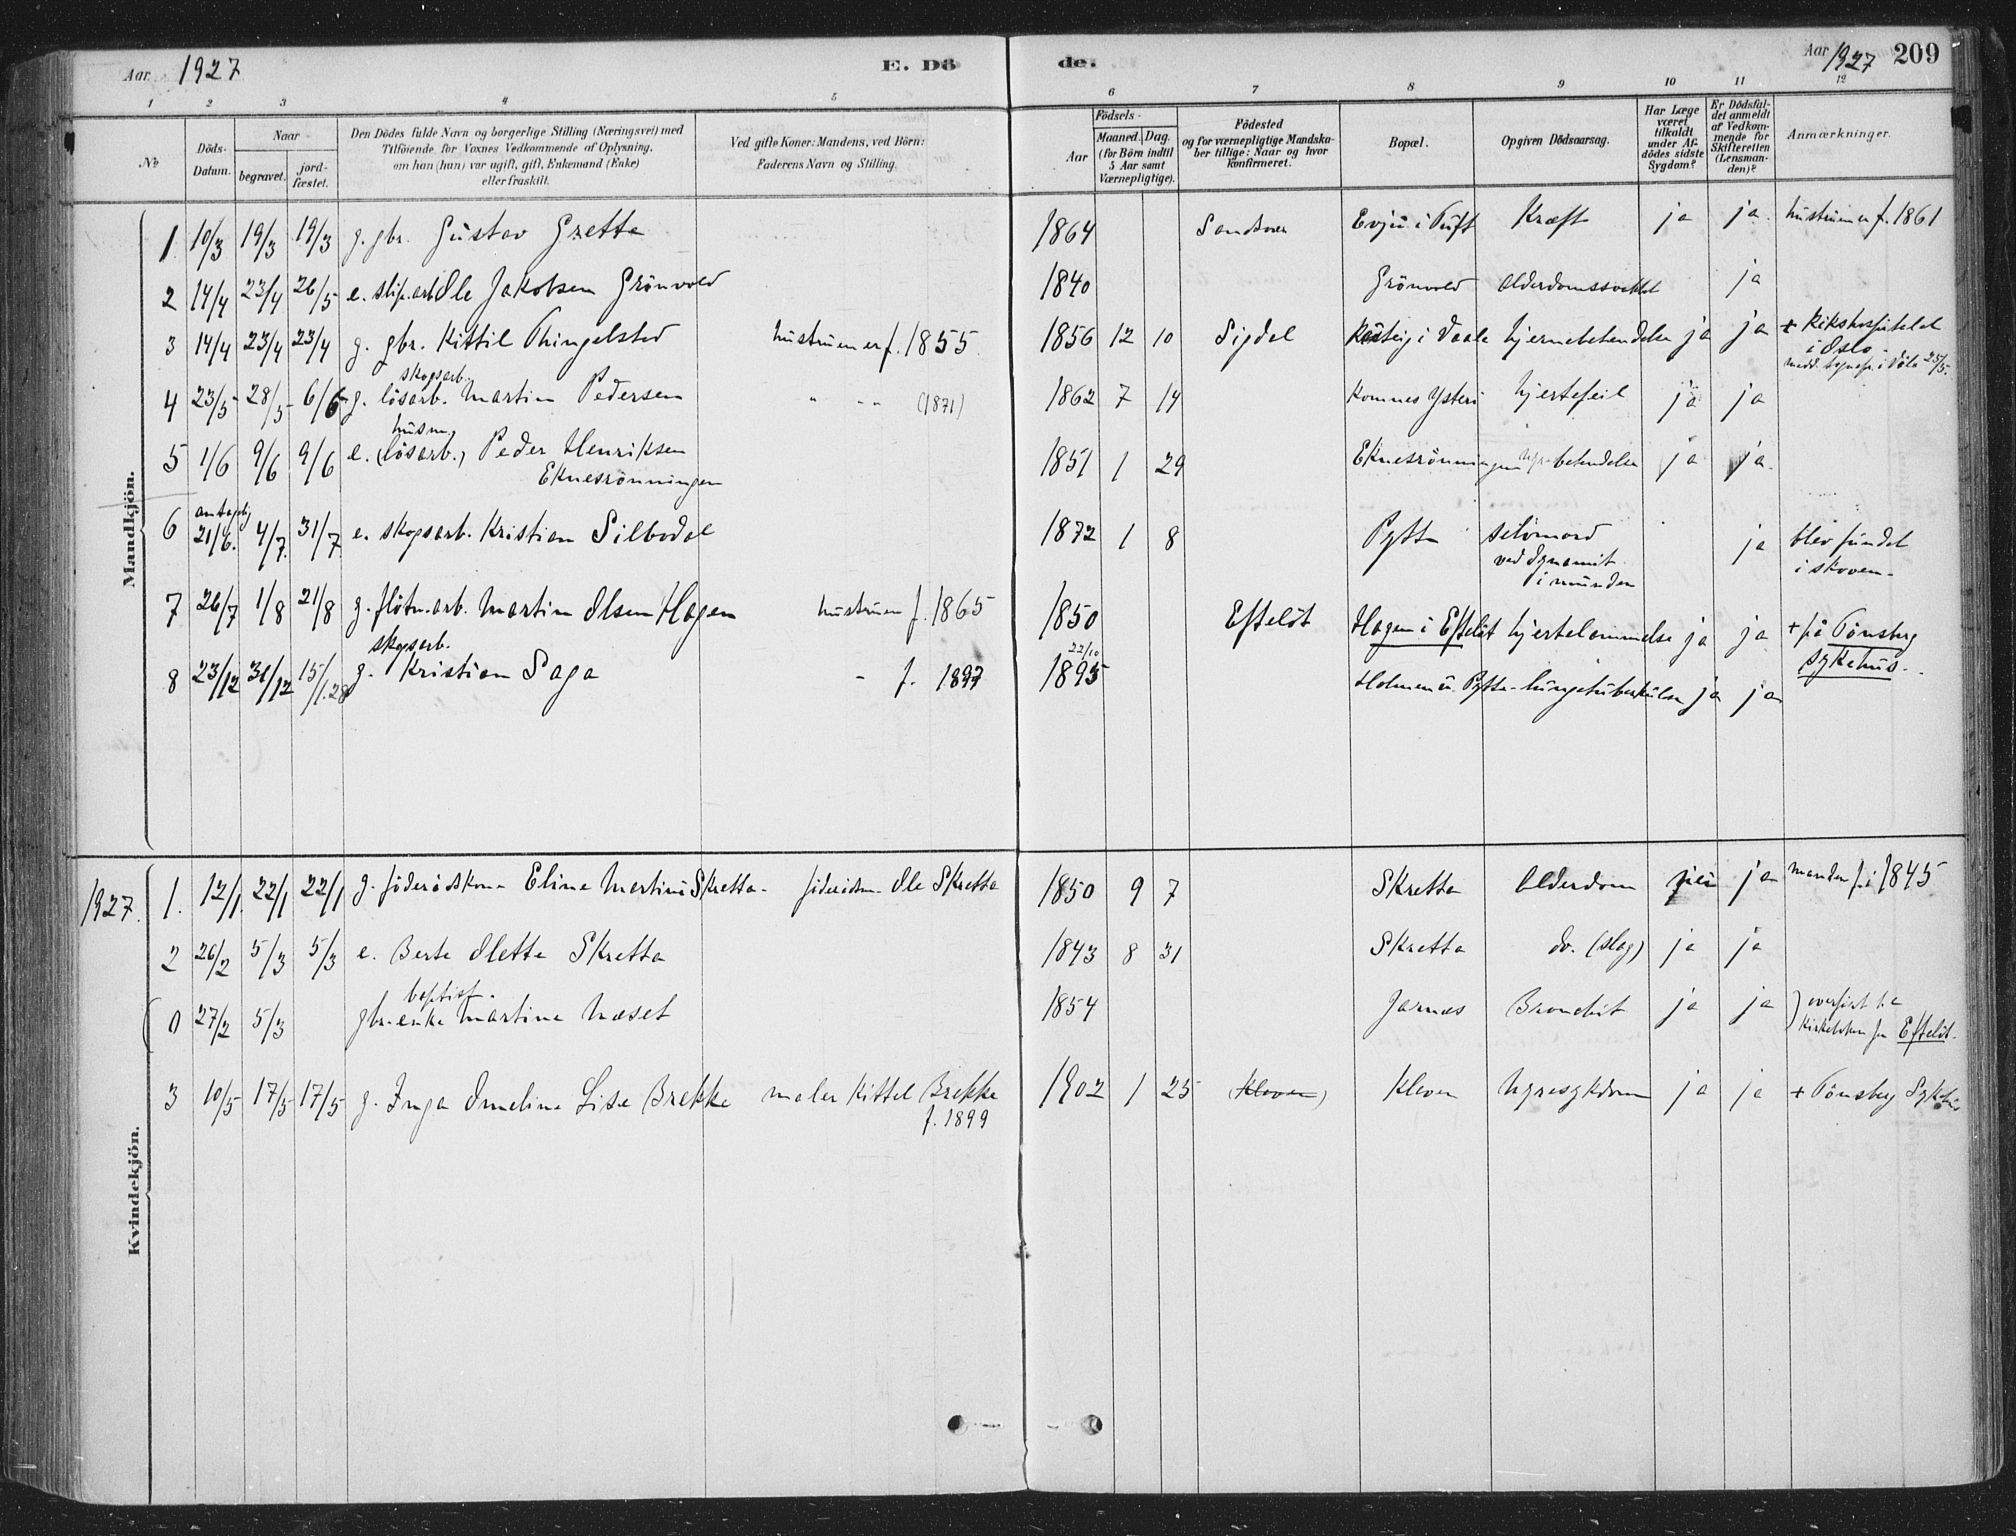 Aar 1927 E. Dö
de. Aar 1927 209
1 2 3 4 5 6 7 8 9 10 11 12
No
Döds-Datum.
Naar
begravet.
jord-fæstet.
Den Dödes fulde Navn og borgerlige Stilling (Næringsvei) med
Tilföiende for Voxnes Vedkommende af Oplysning,
om han (hun) var ugift, gift, Enkemand (Enke)
eller fraskilt.
Ved gifte Koner: Mandens, ved Börn:
Faderens Navn og Stilling.
Födsels-
Aar
Maaned. Dag.
(for Börn indtil
5 Aar samt
Værnepligtige).
Födested
og for værnepligtige Mandska-
ber tillige: Naar og hvor
konfirmeret.
Bopæl.
Opgiven Dödsaarsag.
Har Læge
været
tilkaldt
under Af-
dödes sidste
Sygdom?
Er Dödsfal-
det anmeldt
af Vedkom-
mende for
Skifteretten
(Lensman-
den)?
Anmærkninger.
Mandkjön.
1. 10/3 19/3 19/3 g. gbr. Gustav Grette 1864 Sandsver Evju i Tuft Kræft ja ja. hustruen er f. 1861
2 14/4 23/4 26/5 e. slipearb. Ole Jakobsen Grönvold 1840 Grönvold alderdomssvakhet ja
3 14/4 23/4 23/4 g. gbr. Kittil Thingelstad hustruen er f. 1855. 1856 12 10 Sigdal i Vaale hjernebetendelse ja ja + Rikshospitalet
i Oslo
i Våle 25/5.
skogsarb.
4 23/5 28/5 6/6 g. lösarb. Martin Pedersen " " " (1871) 1862 7 14 Komnes Ysteri hjertefeil ja ja
husm.
5 1/6 9/6 9/6 e. (lösarb.) Peder Henriksen 1851 1 29 Eknesrönningen betendelse ja ja.
Eknesrönningen
antagelig
6 21/6. 4/7. 31/7 e. skogsarb. Kristian Silbodal 1872 1 8 Pytta selvmord ja blev fundet
ved dynamit i skoven.
i munden
7 26/7 1/8 21/8 g. flötn.arb. Martin Olsen Hagen hustruen f. 1865 1850 Efteløt Hagen i Efteløt hjertelammelse ja ja + på Tönsberg
sykehus.
skogsarb. 22/10
8 23/12 31/12 15/1.28 g. Kristian Saga - f. 1897 1895 Holmen u. Pytta lungetuberkulose ja ja
Kvindekjön.
1927. 1. 12/1. 22/1 22/1 g. föderådskone Eline Martine Skretta föderådsm. Ole Skretta 1850 9 7 Skretta Alderdom nei ja manden f. i 1845
2 26/2 5/3 5/3 e. Berte Olette Skretta 1843 8 31 Skretta do. (slag) ja ja
baptist.
0 27/2 5/3 gbr.enke Martine Næset 1854 Jarnæs Bronchit ja ja overfört t.
kirkeboken for Efteløt.
3 10/5 17/5 17/5 g. Inga Emeline Lise Brekke maler Kittel Brekke 1902 1 25 (Kleven) Kleven Nyresykdom ja ja + Tönsberg Sykehus
f. 1899